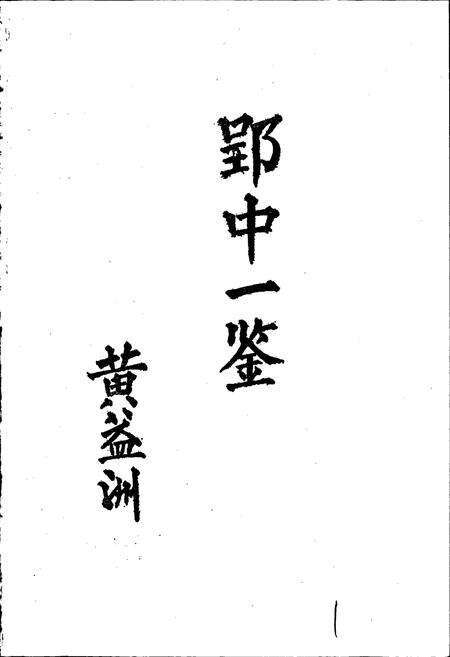 郢中一鉴
黄益洲
1